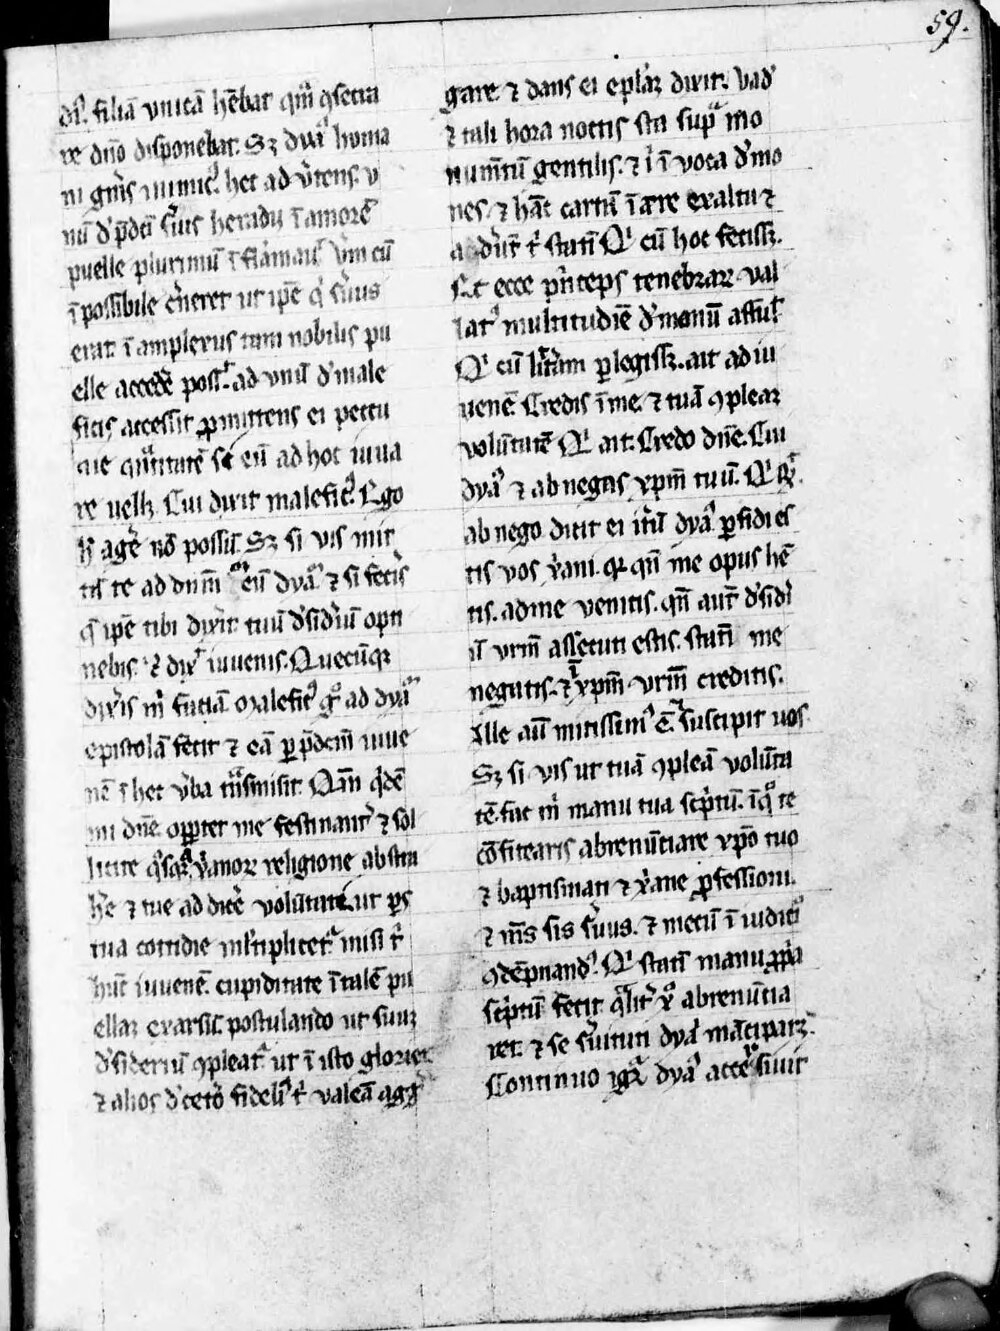 59.
dſ. filiā vnicā hēbat qm̄ ꝯſecra
re dn̄o diſponebat. Sꝫ dyaꝰ huma
ni gn̄is inimicꝰ. hec ad v̓tens. v
nū d̓ p̄dcī ſ̓uis heradii ī amorē
puelle plurimū īflāmauit. Vn̄ cū
ī poſſibile c̓neret ut ip̄e q̓ ſ̓uus
erat ī amplexus tam nobilis pu
elle acced̓e poſſꝫ. ad vnū d̓ male
ficis acceſſit ꝓmittens ei pecu
nie qͣntitatē ſi eū ad hoc iuua
re uellꝫ. Cui dixit maleficꝰ. Ego
h̓ ag̓e nō poſſū. Sꝫ ſi vis mit
tā te ad dnm̄ meū dyaꝰ. ⁊ ſi fec̓is
qd̓ ip̄e tibi dix̓it tuū d̓ſid̓iū opti
nebis. ⁊ dix̓ iuuenis. Quecūqꝫ
dix̓is m̓ faciā. Maleficꝰ g̊ ad dyaꝰ
epiſtolā fecit ⁊ eā ꝑ p̄dcm̄ iuue
nē ī hec v̓ba tͣnſmiſit. Qm̄ q̓dē
mi dn̄e oꝑꝑtet me feſtinant̓ ⁊ ſol
licite q̓ſcūqꝫ x̓ianoꝝ religione abſtra
he ⁊ tue addic̓e volūtati. ut ꝑs
tua cottidie ml̓tiplicet̓. miſi t̓
hūc iuuenē. cupiditate ī talē pu
ellaꝫ exarſiſ. poſtulando ut ſuuꝫ
d̓ſideriū ꝯpleat̓. ut ī iſto glorier
⁊ alios d̓ cetō fidelꝰ t̓ valeā agg̓
gare. ⁊ dans ei epl̓aꝫ dixit. Vad̓
⁊ tali hora noctis ſta ſupͣ mo
numītū gentilis. ⁊ ī ī uoca d̓mo
nes. ⁊ hāc cartū ī aere exalta ⁊
ad̓ūt t̓ ſtatī. Qͥ cū hoc feciſſꝫ.
Et ecce p̓nceps tenebraꝝ val
latꝰ multitudīe d̓monū affuit.
Qͥ cū litͣram ꝑlegiſſꝫ. ait ad iu
uenē. Credis ī me. ⁊ tuā ꝯpleaꝫ
volūtatē. Qͥ ait. Credo dn̄e. Cui
dyaꝰ ⁊ ab negas xpm̄ tuū. Qͥ
ab nego dicit ei īſſu dyaꝰ ꝑfidi eſ
tis vos x̓iani. qꝛ qn̄ me opus hē
tis. ad me venitis. qn̄ aut̄ d̓ſid̓i
ū vrm̄ aſſecuti eſtis. ſtatī me
negatis. ⁊ xpm̄ vrm̄ creditis.
Ille aūt mitiſſimꝰ ē. ſuſcipit uos.
Sꝫ ſi vis ut tuā ꝯpleā volūta
tē. fac m̓ manu tua ſcp̓tū. ī qͦ te
cōfitearis abrenūtiare xpo tuo
⁊ baptiſmati ⁊ x̓iane ꝓfeſſioni.
⁊ m̄s ſis ſ̓uus. ⁊ mecū ī iudicͦ
ꝯdēpnandꝰ. Qͥ ſtatī manu ꝓp̓a
ſcp̓tū fecit qͣlit̓ xͦ abrenūtia
ret. ⁊ ſe ſ̓uituti dyaꝰ mācipatꝫ.
Continuo igr̓ dyaꝰ acce